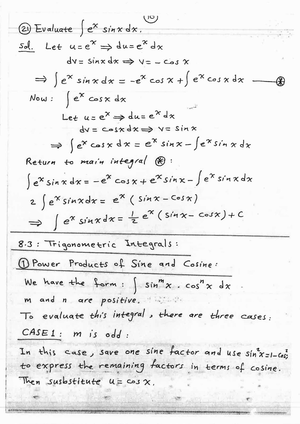 10
(21) Evaluate ∫ e^x sin x dx.
Sol. Let u = e^x ⟹ du = e^x dx
dv = sin x dx ⟹ v = - cos x
⟹ ∫ e^x sin x dx = -e^x cos x + ∫ e^x cos x dx — ⊛
Now : ∫ e^x cos x dx
Let u = e^x ⟹ du = e^x dx
dv = cos x dx ⟹ v = sin x
⟹ ∫ e^x cos x dx = e^x sin x - ∫ e^x sin x dx
Return to main integral ⊛ :
∫ e^x sin x dx = -e^x cos x + e^x sin x - ∫ e^x sin x dx
2 ∫ e^x sin x dx = e^x ( sin x - cos x )
⟹ ∫ e^x sin x dx = 1/2 e^x ( sin x - cos x ) + C
8.3 : Trigonometric Integrals :
(1) Power Products of Sine and Cosine :
We have the form : ∫ sin^m x . cos^n x dx
m and n are positive.
To evaluate this integral , there are three cases :
CASE 1 : m is odd :
In this case , save one sine factor and use sin^2 x = 1 - cos^2 x
to express the remaining factors in terms of cosine.
Then susbstitute u = cos x .